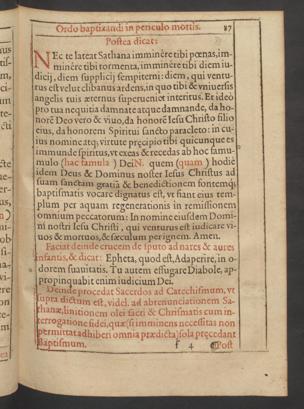 Ordo baptizandi in periculo mortis. 87
Postea dicat:
NEc te lateat Sathana imminēre tibi pœnas, im-
minēre tibi tormenta, imminēre tibi diem iu-
dicij, diem supplicij sempiterni: diem, qui ventu-
rus est velut clibanus ardens, in quo tibi & vniuersis
angelis tuis æternus superueniet interitus. Et ideò
pro tua nequitia damnate atque damnande, da ho-
norē Deo vero & viuo, da honorē Iesu Christo filio
eius, da honorem Spiritui sancto paracleto: in cu-
ius nomine atq; virtute præcipio tibi quicunque es
immunde spiritus, vt exeas & recedas ab hoc famu-
mulo (hac famula) Dei N. quem (quam) hodiè
idem Deus & Dominus noster Iesus Christus ad
suam sanctam gratiā & benedictionem fontemq;
baptismatis vocare dignatus est, vt fiant eius tem-
plum per aquam regenerationis in remissionem
omnium peccatorum: In nomine eiusdem Domi-
ni nostri Iesu Christi, qui venturus est iudicare vi-
uos & mortuos, & sæculum per ignem. Amen.
Faciat deinde crucem de sputo ad nares & aures
infantis, & dicat: Epheta, quod est, Adaperire, in o-
dorem suauitatis. Tu autem effugare Diabole, ap-
propinquabit enim iudicium Dei.
Deinde procedat Sacerdos ad Catechismum, vt
supra dictum est, videl. ad abrenunciationem Sa-
thanæ, linitionem olei sacri & Chrismatis cum in-
terrogatione fidei, quæ (si imminens necessitas non
permittat adhiberi omnia prædicta) sola præcedant
Baptismum. f 4 Post